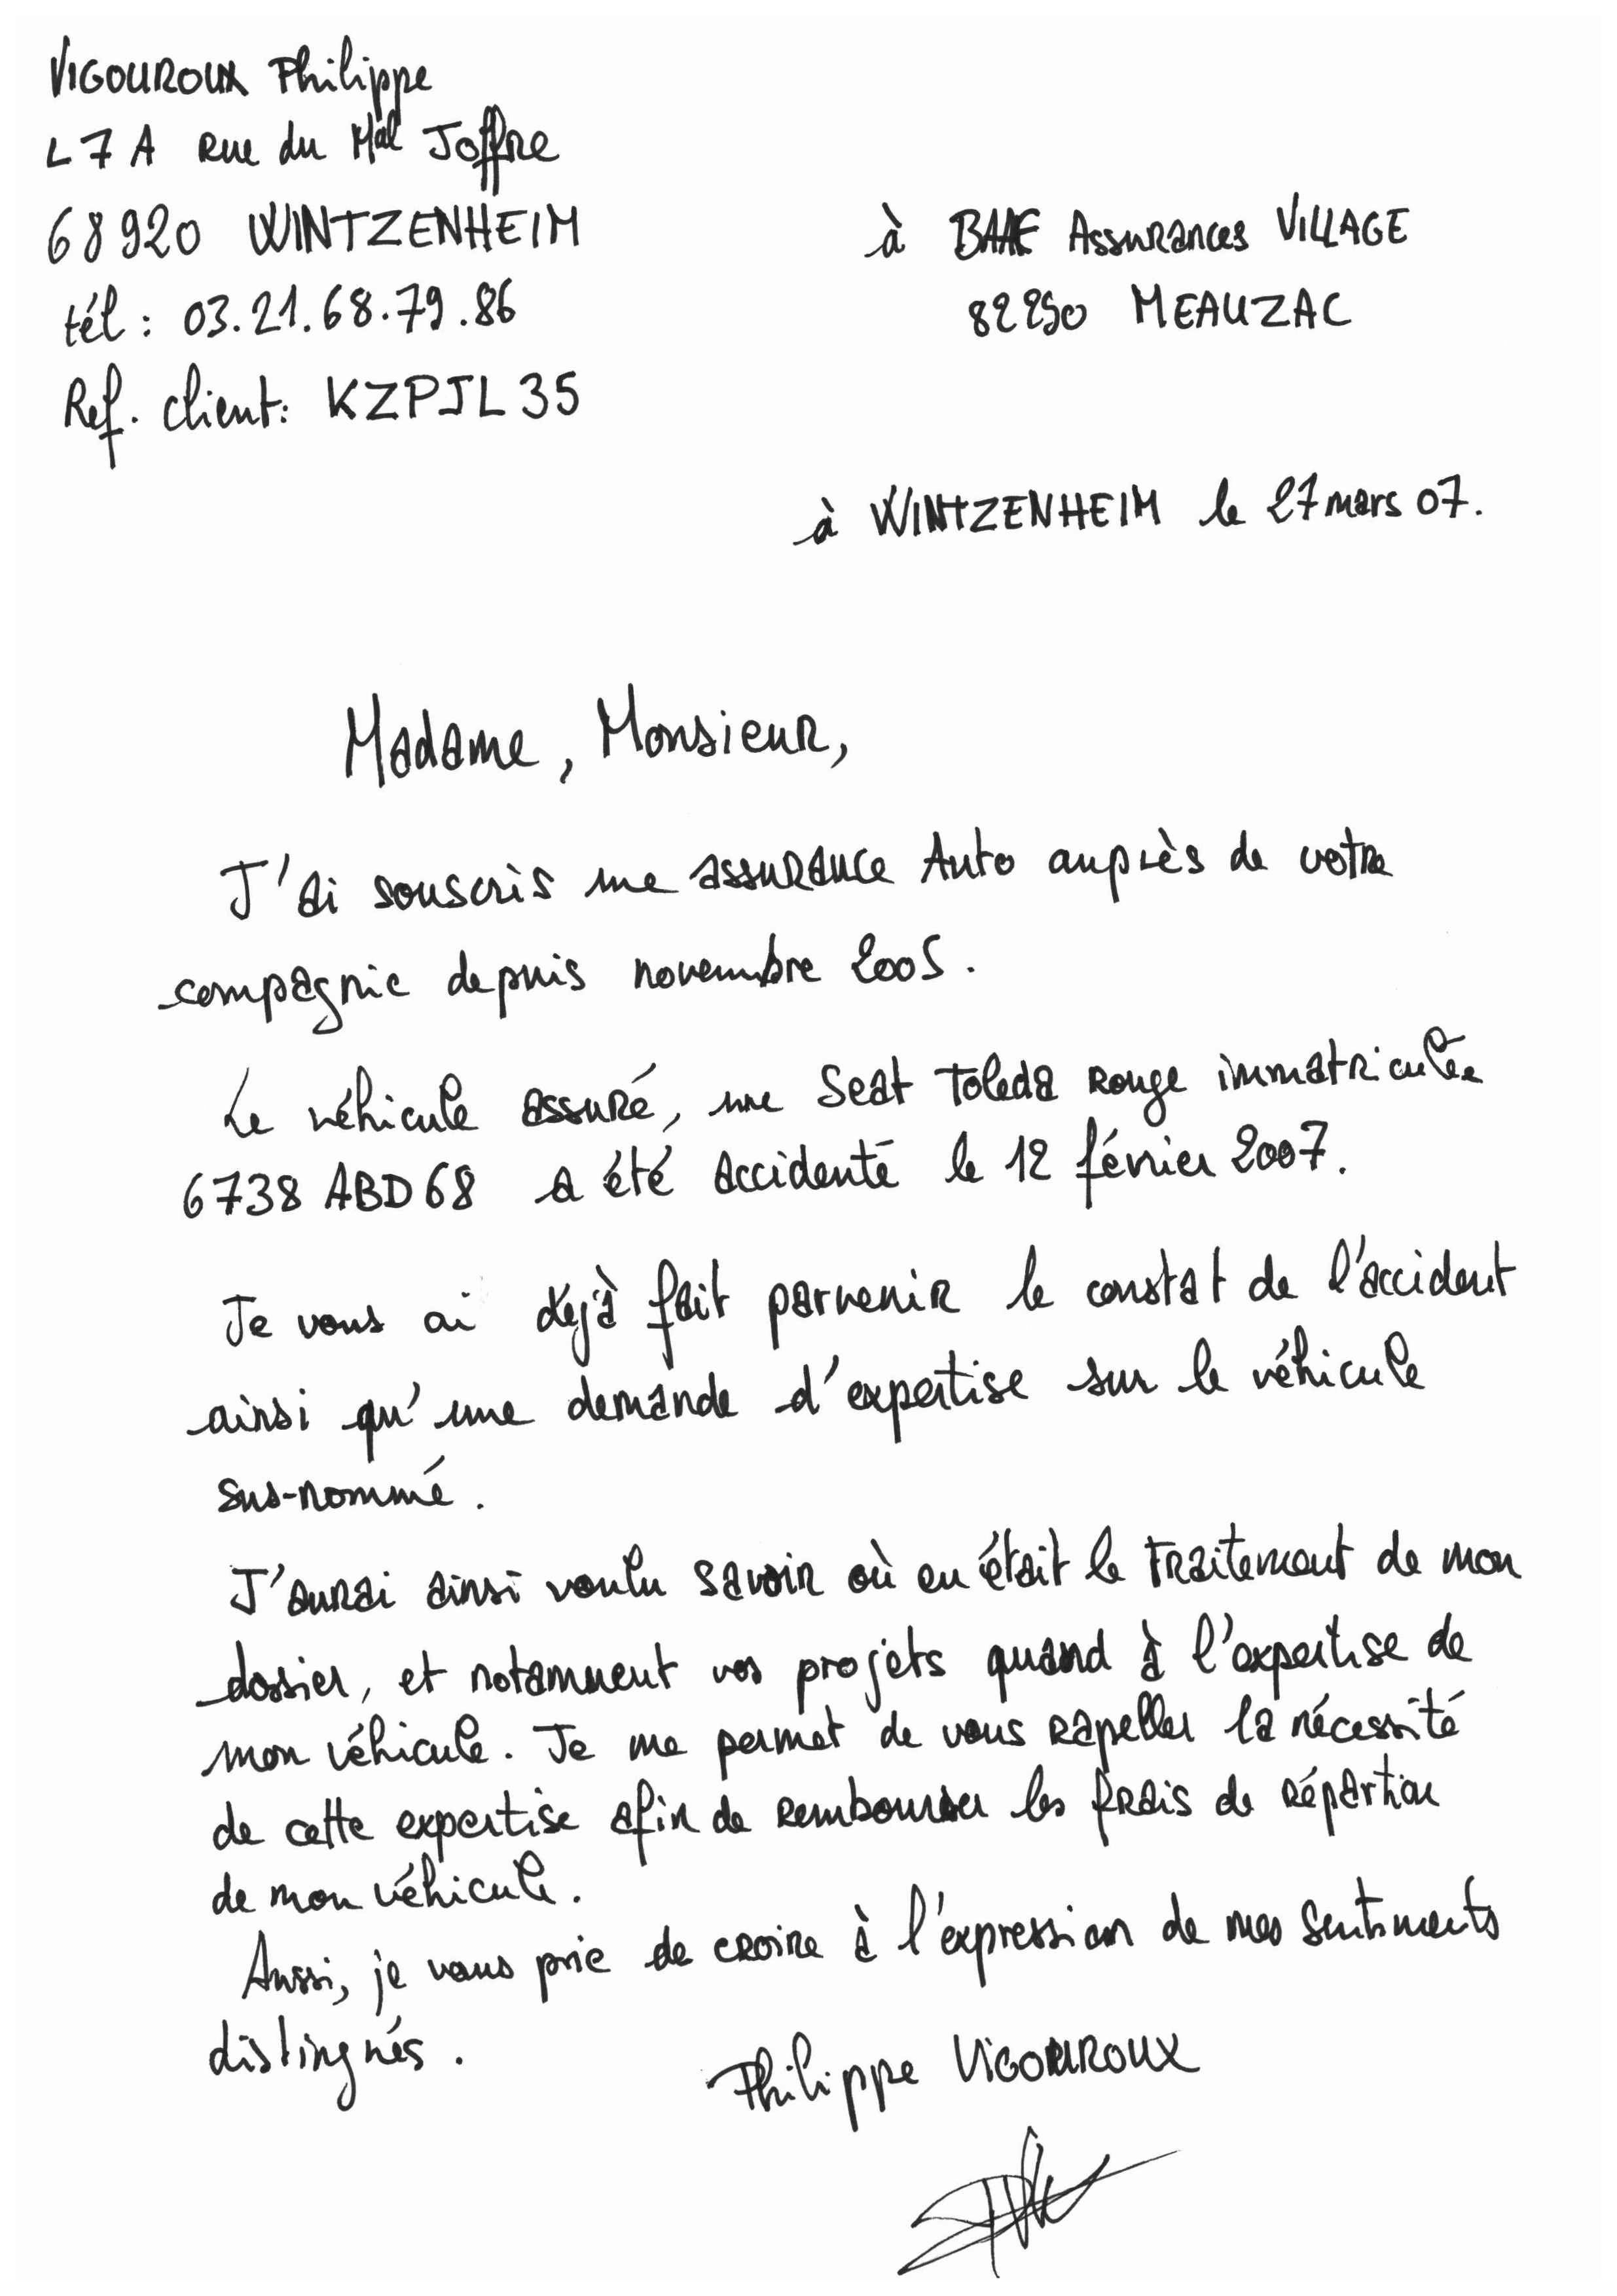 VIGOUROUX Philippe
L7A Rue du Mal Joffre
68920 WINTZENHEIM
tél : 03.21.68.79.86
Ref. client: KZPJL35
à BAAF Assurances VILLAGE
82290 MEAUZAC
à WINTZENHEIM le 27 mars 07.
Madame, Monsieur,
J'ai souscris une assurance Auto auprès de votre
compagnie depuis novembre 2005.
Le véhicule assuré, une Seat Toleda Rouge immatriculée
6738 ABD 68 a été accidenté le 12 février 2007.
Je vous ai dejà fait parvenir le constat de l'accident
ainsi qu'une demande d'expertise sur le véhicule
sus-nommé.
J'aurai ainsi voulu savoir où en était le traitement de mon
dossier, et notamment vos projets quand à l'expertise de
mon véhicule. Je me permet de vous rapeller la nécessité
de cette expertise afin de rembourser les frais de répartion
de mon véhicule.
Aussi, je vous prie de croire à l'expression de mes sentiments
distingués.
Philippe VIGOUROUX